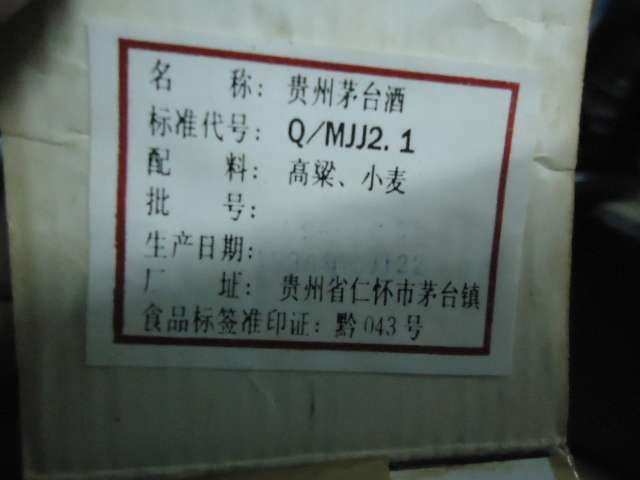 名 称: 贵州茅台酒
标准代号: Q/MJJ2.1
配 料: 高粱、小麦
批 号:
生产日期:
厂 址: 贵州省仁怀市茅台镇
食品标签准印证: 黔043号